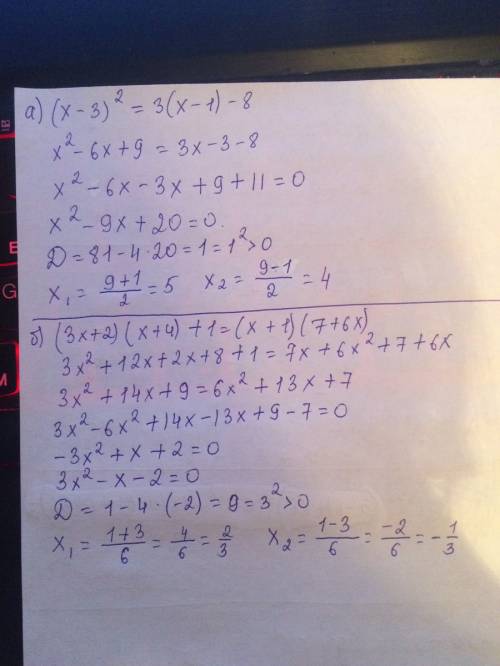 а) (x-3)² = 3(x-1)-8
x²-6x+9 = 3x-3-8
x²-6x-3x+9+11=0
x²-9x+20=0.
Д=81-4·20=1=1²>0
x₁ = (9+1)/2 = 5 x₂ = (9-1)/2 = 4
б) (3x+2)(x+4)+1=(x+1)(7+6x)
3x²+12x+2x+8+1=7x+6x²+7+6x
3x²+14x+9=6x²+13x+7
3x²-6x²+14x-13x+9-7=0
-3x²+x+2=0
3x²-x-2=0
Д=1-4·(-2)=9=3²>0
x₁ = (1+3)/6 = 4/6 = 2/3 x₂ = (1-3)/6 = -2/6 = -1/3
E
G
M